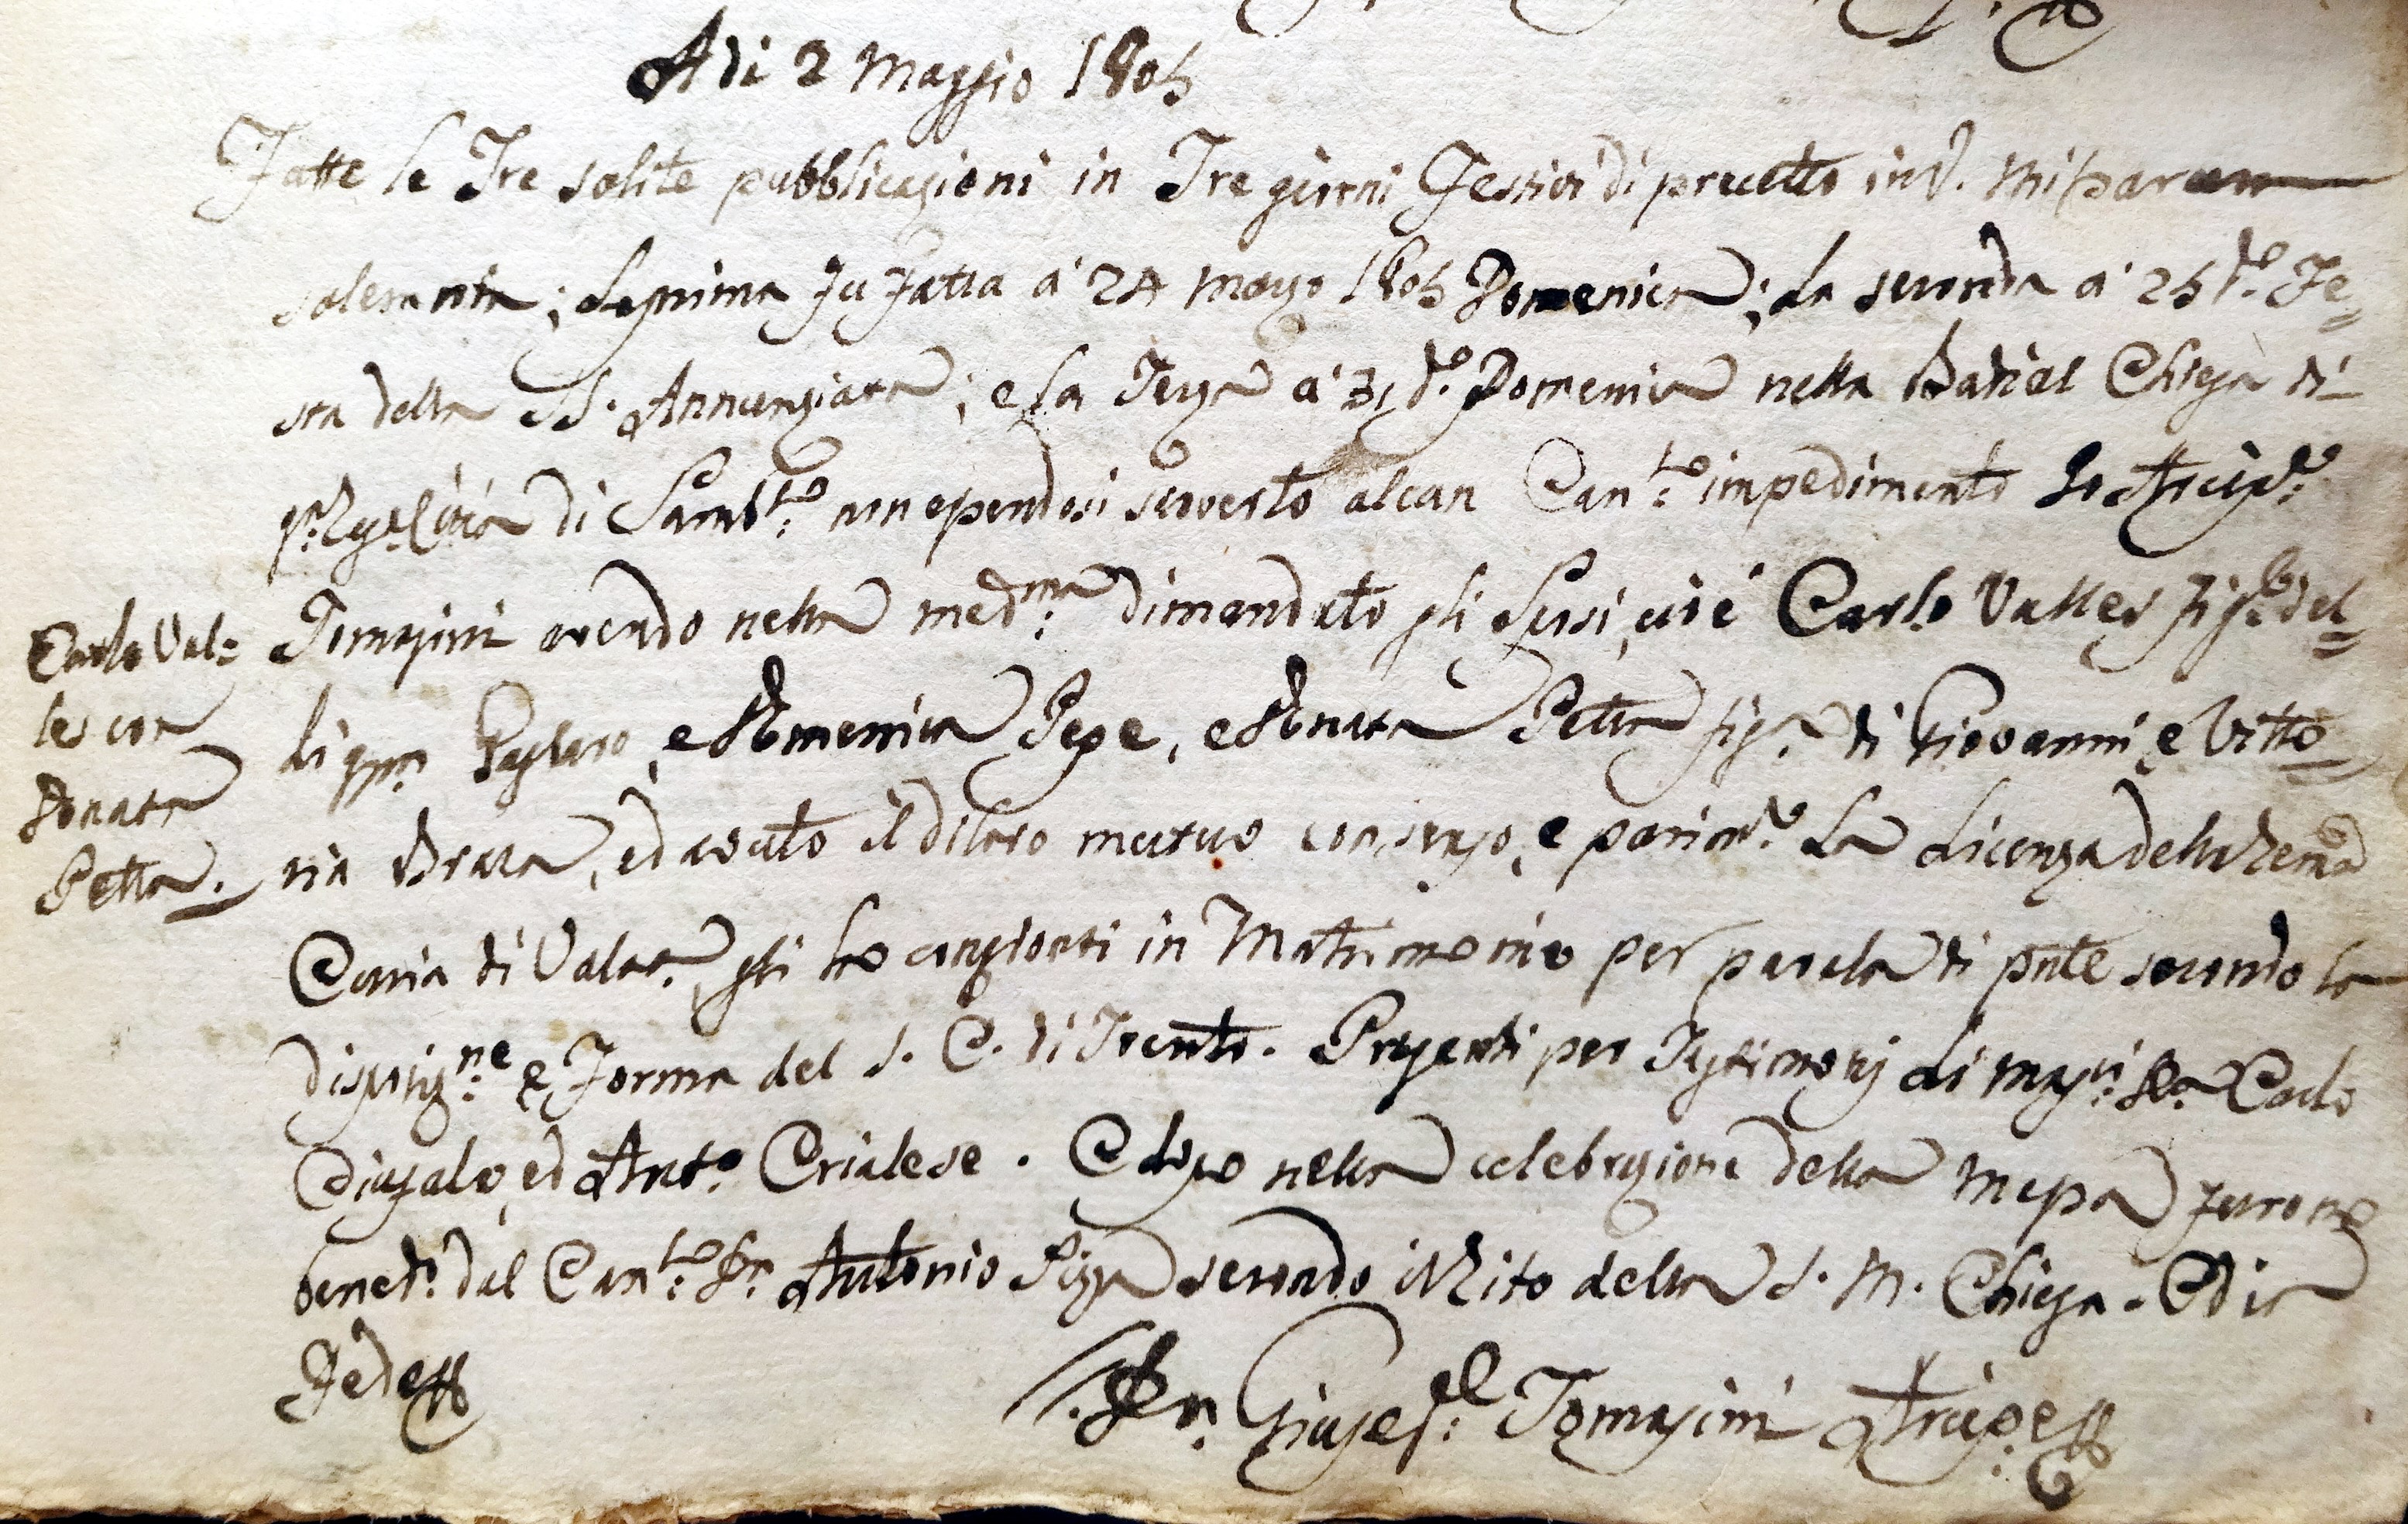 Adi 2 Maggio 1805
Fatte le Tre solite pubblicazioni in Tre giorni Festivi di precetto inf. Missarum
solemnia; La prima fu fatta a' 24 Marzo 1805 Domenica; La seconda a' 25 do. Fe=
sta della SS. Annunziata; e la Terza a' 31 do. Domenica nella Badial Chiesa di
di Samb.to non essendosi scoverto alcun Can.co impedimento Io Arcip.e
Tomasini avendo nella med.ma dimandato gli Sposi, cioè Carlo Valles figlo. del=
li qm. e Domenica Pepe, e Donata Petta figa. di Giovanni, e Vitto=
ria Braca, ed avuto il di loro mutuo consenso, e parim.e La Licenza della Rema.
Curia di Valva, gli ho congionti in Matrimonio per parola di pnte secondo la
disposiz.ne e Forma del S. C. di Trento. Presenti per Testimonj Li Mag.ci Dn. Carlo
ed Anto. Crialese. E dopo nella celebrazione della Messa furono
bened.i dal Can.co Dn. Antonio Pizza secondo il Rito della S. M. Chiesa. Ed in
Fede
Dn. Giusep.e Tomasini Arcip.e
Carlo Val=
les con
Donata
Petta.